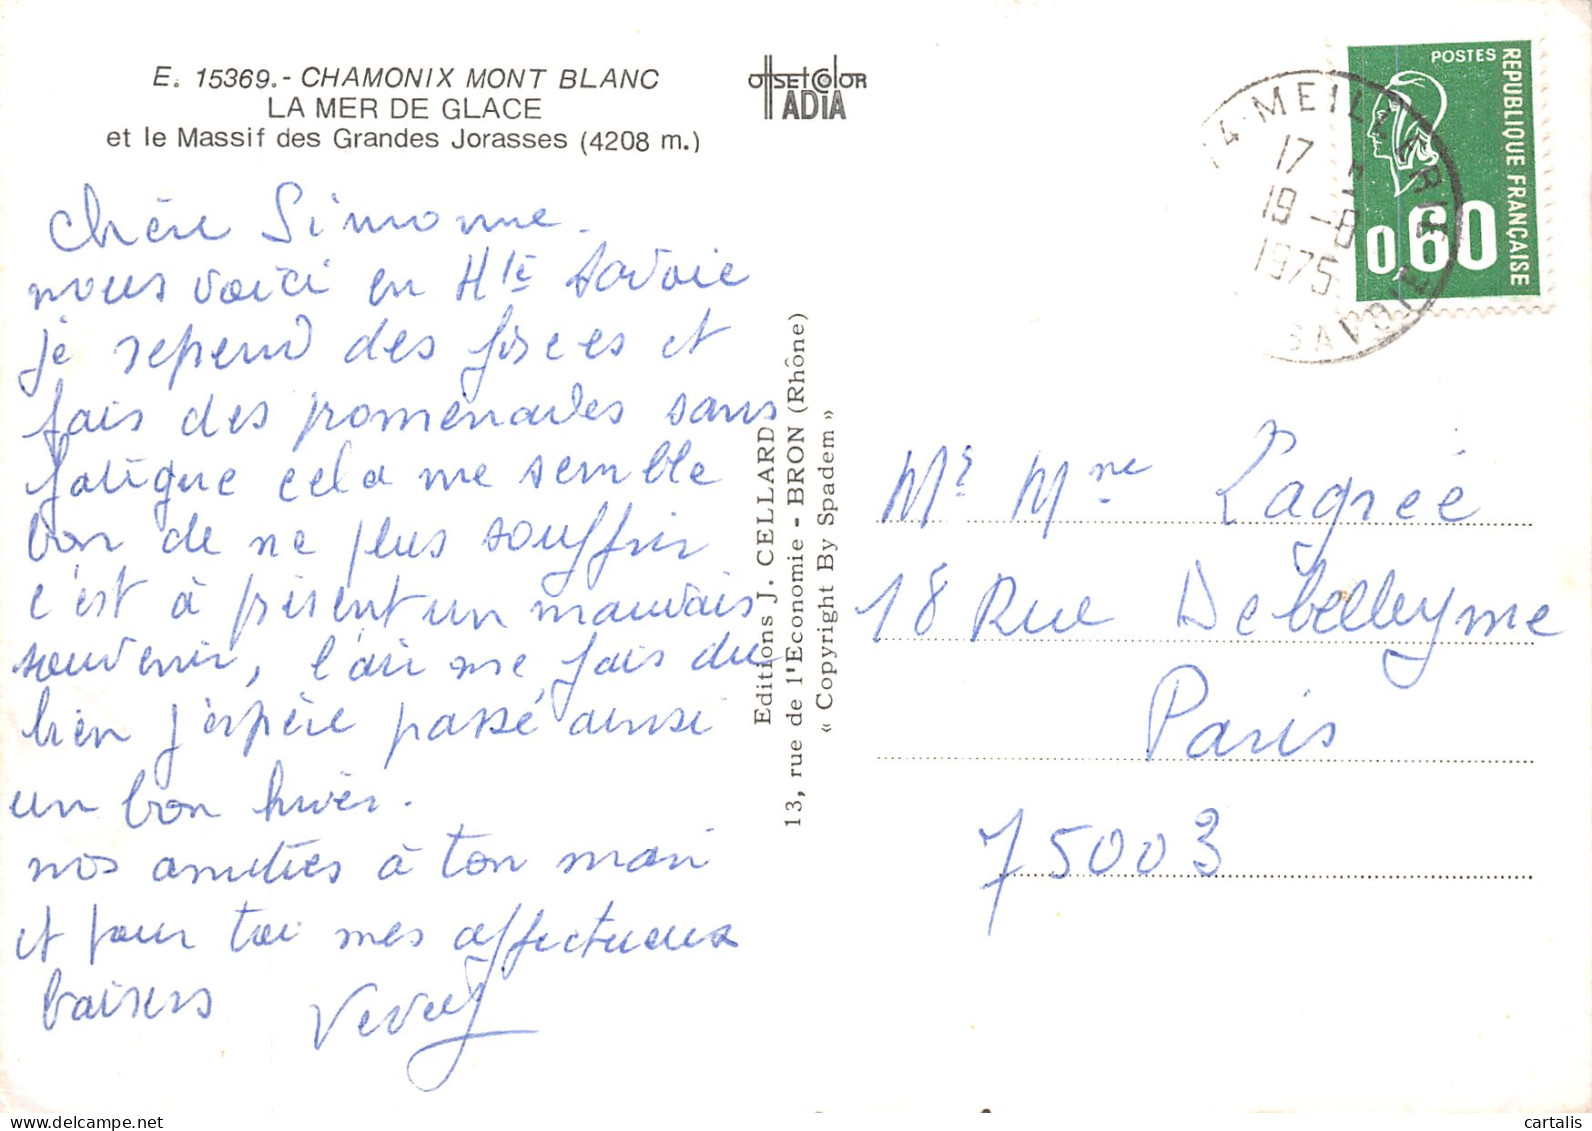 E. 15369.- CHAMONIX MONT BLANC
LA MER DE GLACE
et le Massif des Grandes Jorasses (4208 m.)
offsetcolor
ADIA
chère Simonne.
nous voici en Hte Savoie
je reprend des forces et
fais des promenades sans
fatigue cela me semble
bon de ne plus souffrir
c'est à présent un mauvais
souvenir, l'air me fais du
bien j'espère passé ainsi
un bon hiver.
nos amitiés à ton mari
et pour toi mes affectueux
baisers
Editions J. CELLARD
13, rue de l'Economie - BRON (Rhône)
« Copyright By Spadem »
POSTES
REPUBLIQUE FRANÇAISE
0,60
74 MEILLERIE
17
19 -8
1975
SAVOIE
Mr Mme Lagrée
18 Rue Debelleyme
Paris
75003
cartalis